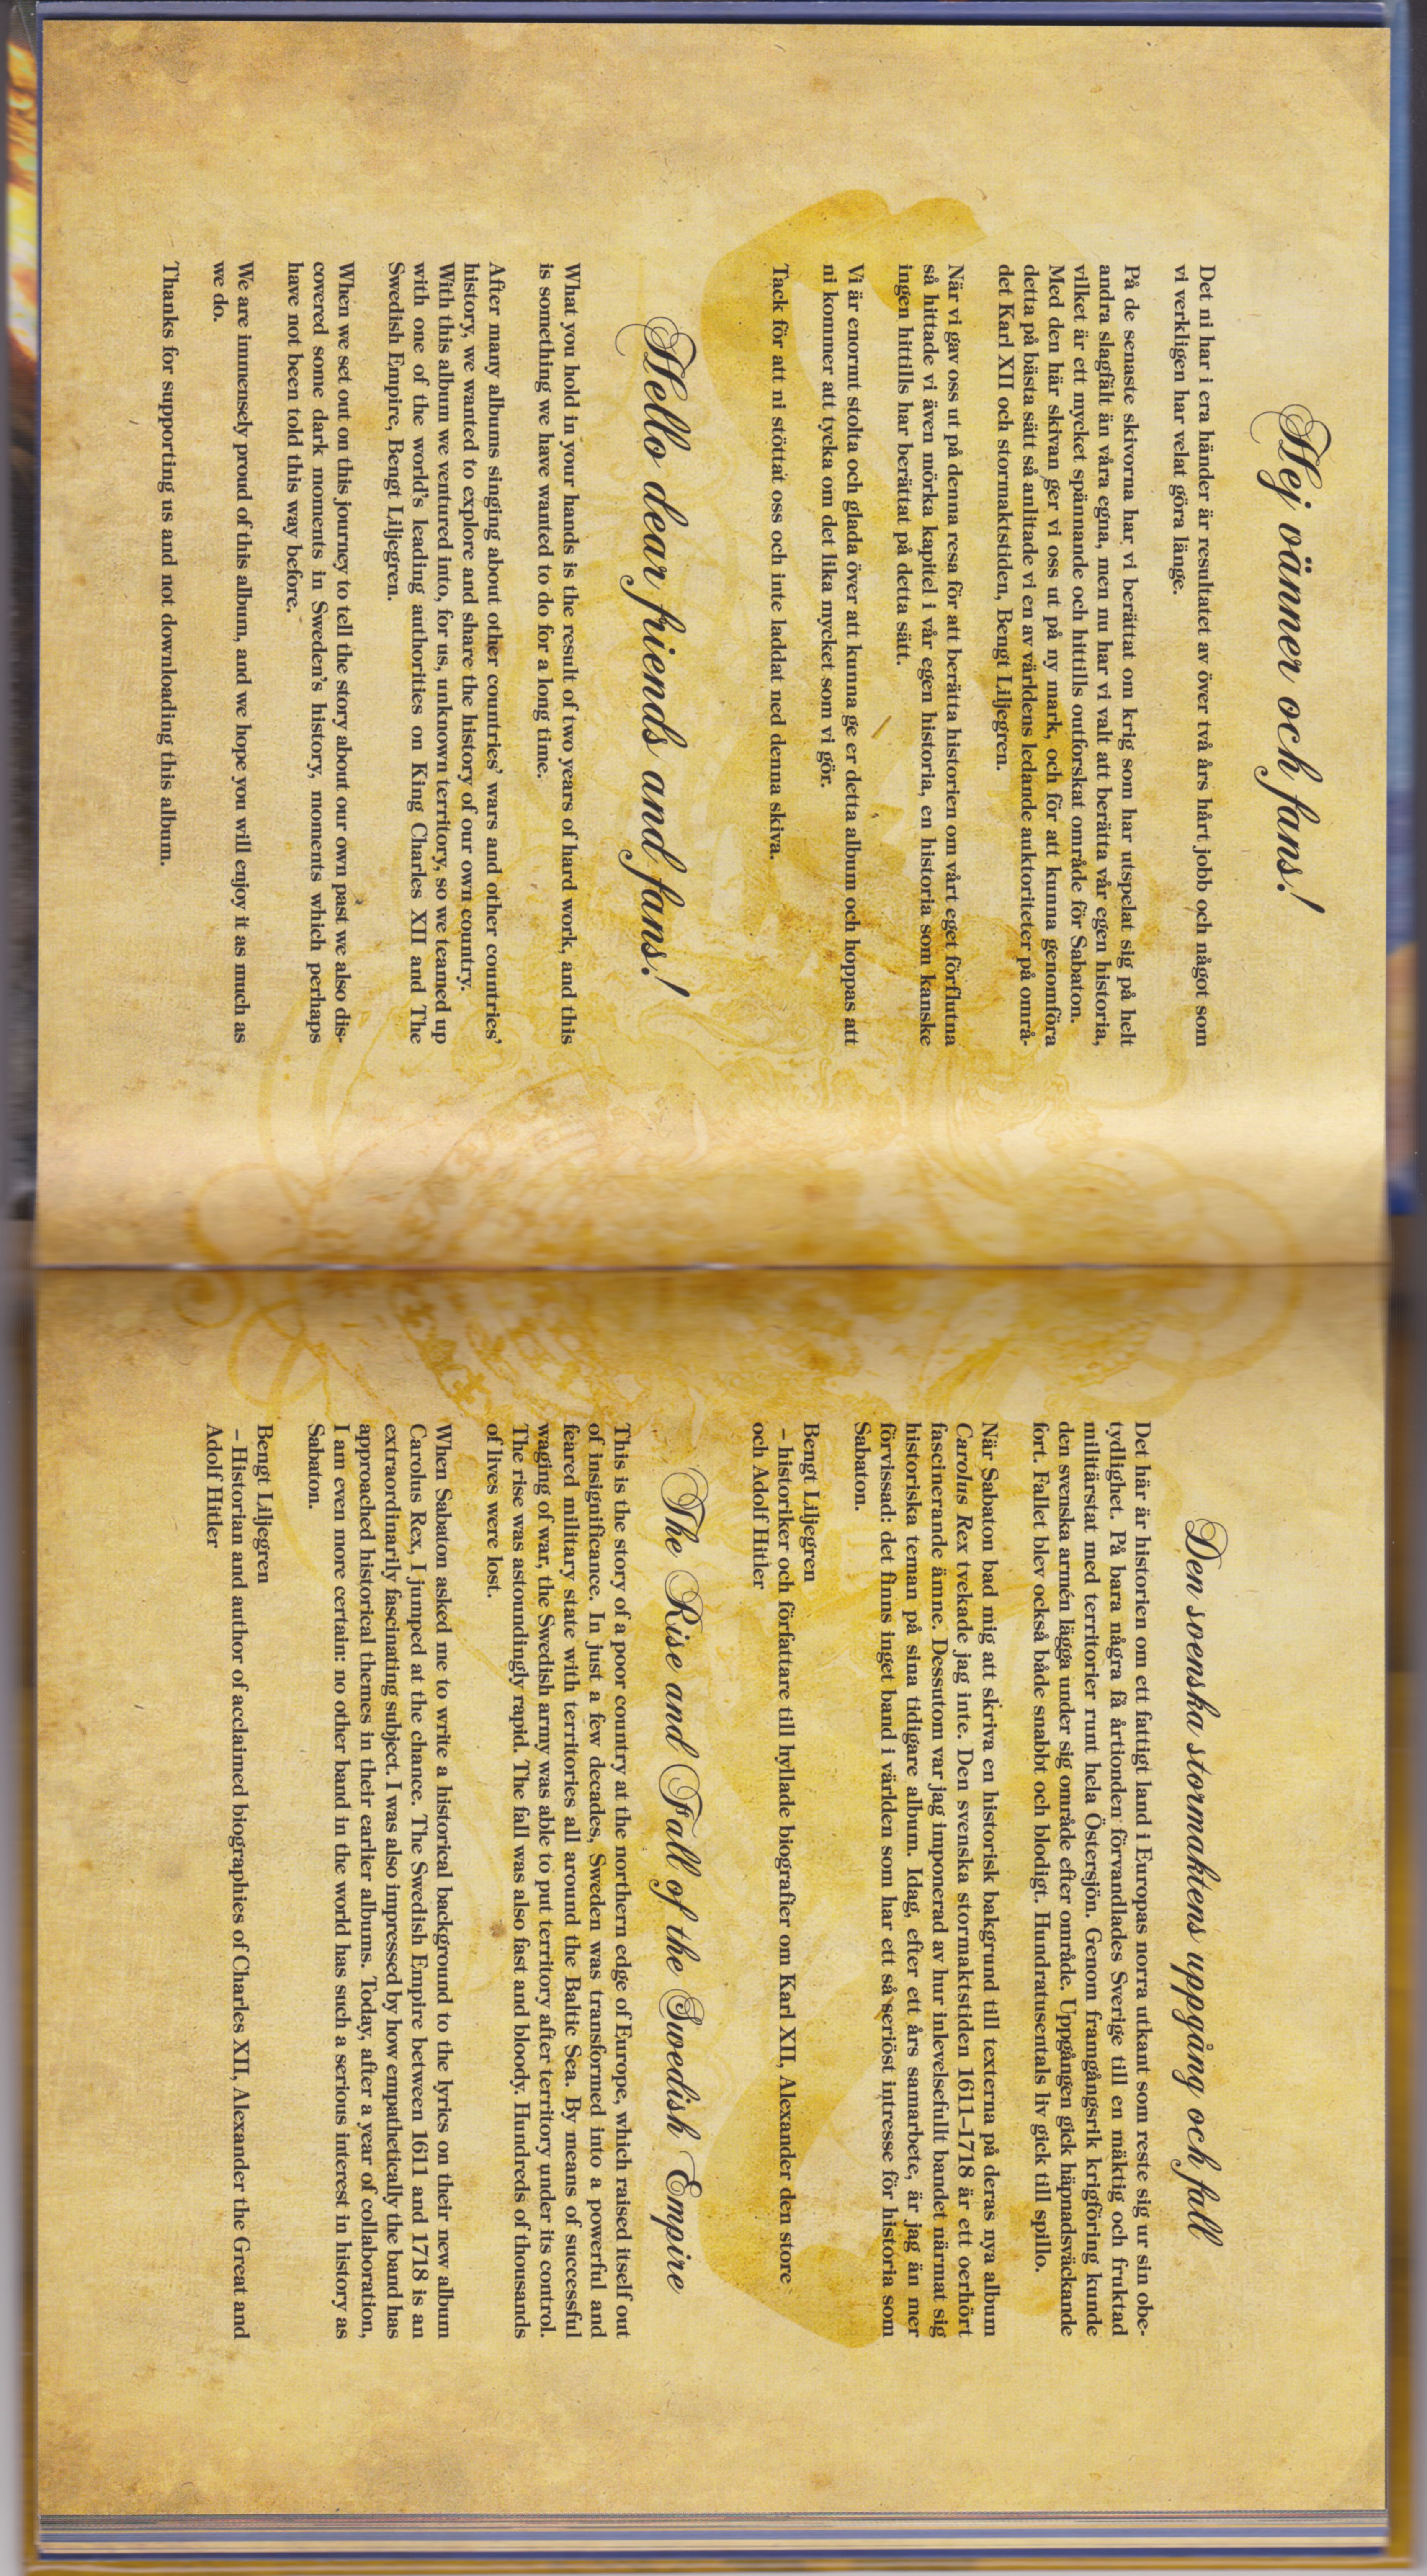 Hej vänner och fans!
Det ni har i era händer är resultatet av över två års hårt jobb och något som
vi verkligen har velat göra länge.
På de senaste skivorna har vi berättat om krig som har utspelat sig på helt
andra slagfält än våra egna, men nu har vi valt att berätta vår egen historia,
vilket är ett mycket spännande och hittills outforskat område för Sabaton.
Med den här skivan ger vi oss ut på ny mark, och för att kunna genomföra
detta på bästa sätt så anlitade vi en av världens ledande auktoriteter på områ-
det Karl XII och stormaktstiden, Bengt Liljegren.
När vi gav oss ut på denna resa för att berätta historien om vårt eget förflutna
så hittade vi även mörka kapitel i vår egen historia, en historia som kanske
ingen hittills har berättat på detta sätt.
Vi är enormt stolta och glada över att kunna ge er detta album och hoppas att
ni kommer att tycka om det lika mycket som vi gör.
Tack för att ni stöttat oss och inte laddat ned denna skiva.
Hello dear friends and fans!
What you hold in your hands is the result of two years of hard work, and this
is something we have wanted to do for a long time.
After many albums singing about other countries' wars and other countries'
history, we wanted to explore and share the history of our own country.
With this album we ventured into, for us, unknown territory, so we teamed up
with one of the world's leading authorities on King Charles XII and The
Swedish Empire, Bengt Liljegren.
When we set out on this journey to tell the story about our own past we also dis-
covered some dark moments in Sweden's history, moments which perhaps
have not been told this way before.
We are immensely proud of this album, and we hope you will enjoy it as much as
we do.
Thanks for supporting us and not downloading this album.
Den svenska stormaktens uppgång och fall
Det här är historien om ett fattigt land i Europas norra utkant som reste sig ur sin obe-
tydlighet. På bara några få årtionden förvandlades Sverige till en mäktig och fruktad
militärstat med territorier runt hela Östersjön. Genom framgångsrik krigföring kunde
den svenska armén lägga under sig område efter område. Uppgången gick häpnadsväckande
fort. Fallet blev också både snabbt och blodigt. Hundratusentals liv gick till spillo.
När Sabaton bad mig att skriva en historisk bakgrund till texterna på deras nya album
Carolus Rex tvekade jag inte. Den svenska stormaktstiden 1611–1718 är ett oerhört
fascinerande ämne. Dessutom var jag imponerad av hur inlevelsefullt bandet närmat sig
historiska teman på sina tidigare album. Idag, efter ett års samarbete, är jag än mer
förvissad: det finns inget band i världen som har ett så seriöst intresse för historia som
Sabaton.
Bengt Liljegren
– historiker och författare till hyllade biografier om Karl XII, Alexander den store
och Adolf Hitler
The Rise and Fall of the Swedish Empire
This is the story of a poor country at the northern edge of Europe, which raised itself out
of insignificance. In just a few decades, Sweden was transformed into a powerful and
feared military state with territories all around the Baltic Sea. By means of successful
waging of war, the Swedish army was able to put territory after territory under its control.
The rise was astoundingly rapid. The fall was also fast and bloody. Hundreds of thousands
of lives were lost.
When Sabaton asked me to write a historical background to the lyrics on their new album
Carolus Rex, I jumped at the chance. The Swedish Empire between 1611 and 1718 is an
extraordinarily fascinating subject. I was also impressed by how empathetically the band has
approached historical themes in their earlier albums. Today, after a year of collaboration,
I am even more certain: no other band in the world has such a serious interest in history as
Sabaton.
Bengt Liljegren
– Historian and author of acclaimed biographies of Charles XII, Alexander the Great and
Adolf Hitler